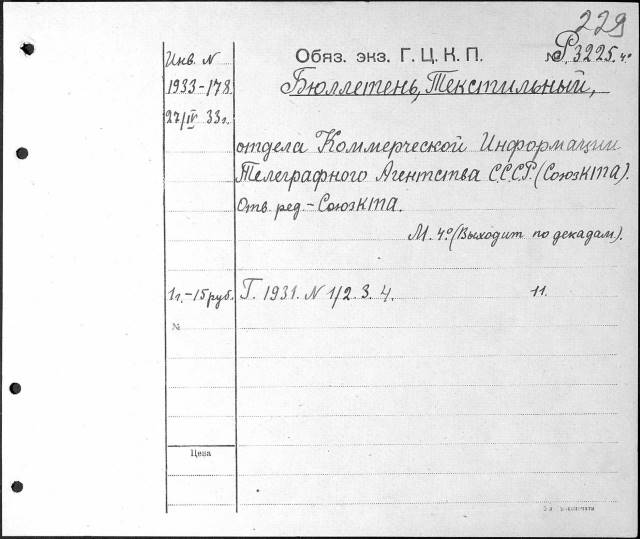 229
Инв. N Обяз. экз. Г. Ц. К. П. № Р. 3225. 4°
1933-178 Бюллетень, Текстильный,
27/IV 33 г.
отдела Коммерческой Информации
Телеграфного Агентства С.С.С.Р. (Союзкта).
Отв. ред. - Союзкта.
М. 4° (Выходит по декадам).
1 г. - 15 руб. Г. 1931. N 1/2. 3. 4. 11.
№
Цена